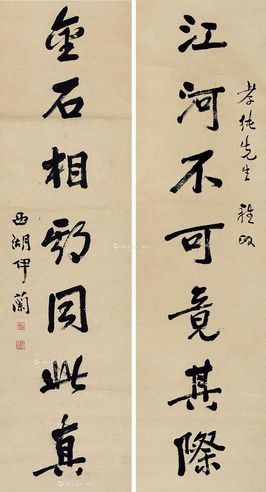 江河不可竟其際
孝純先生雅政
金石相期同此真
西湖伊蘭